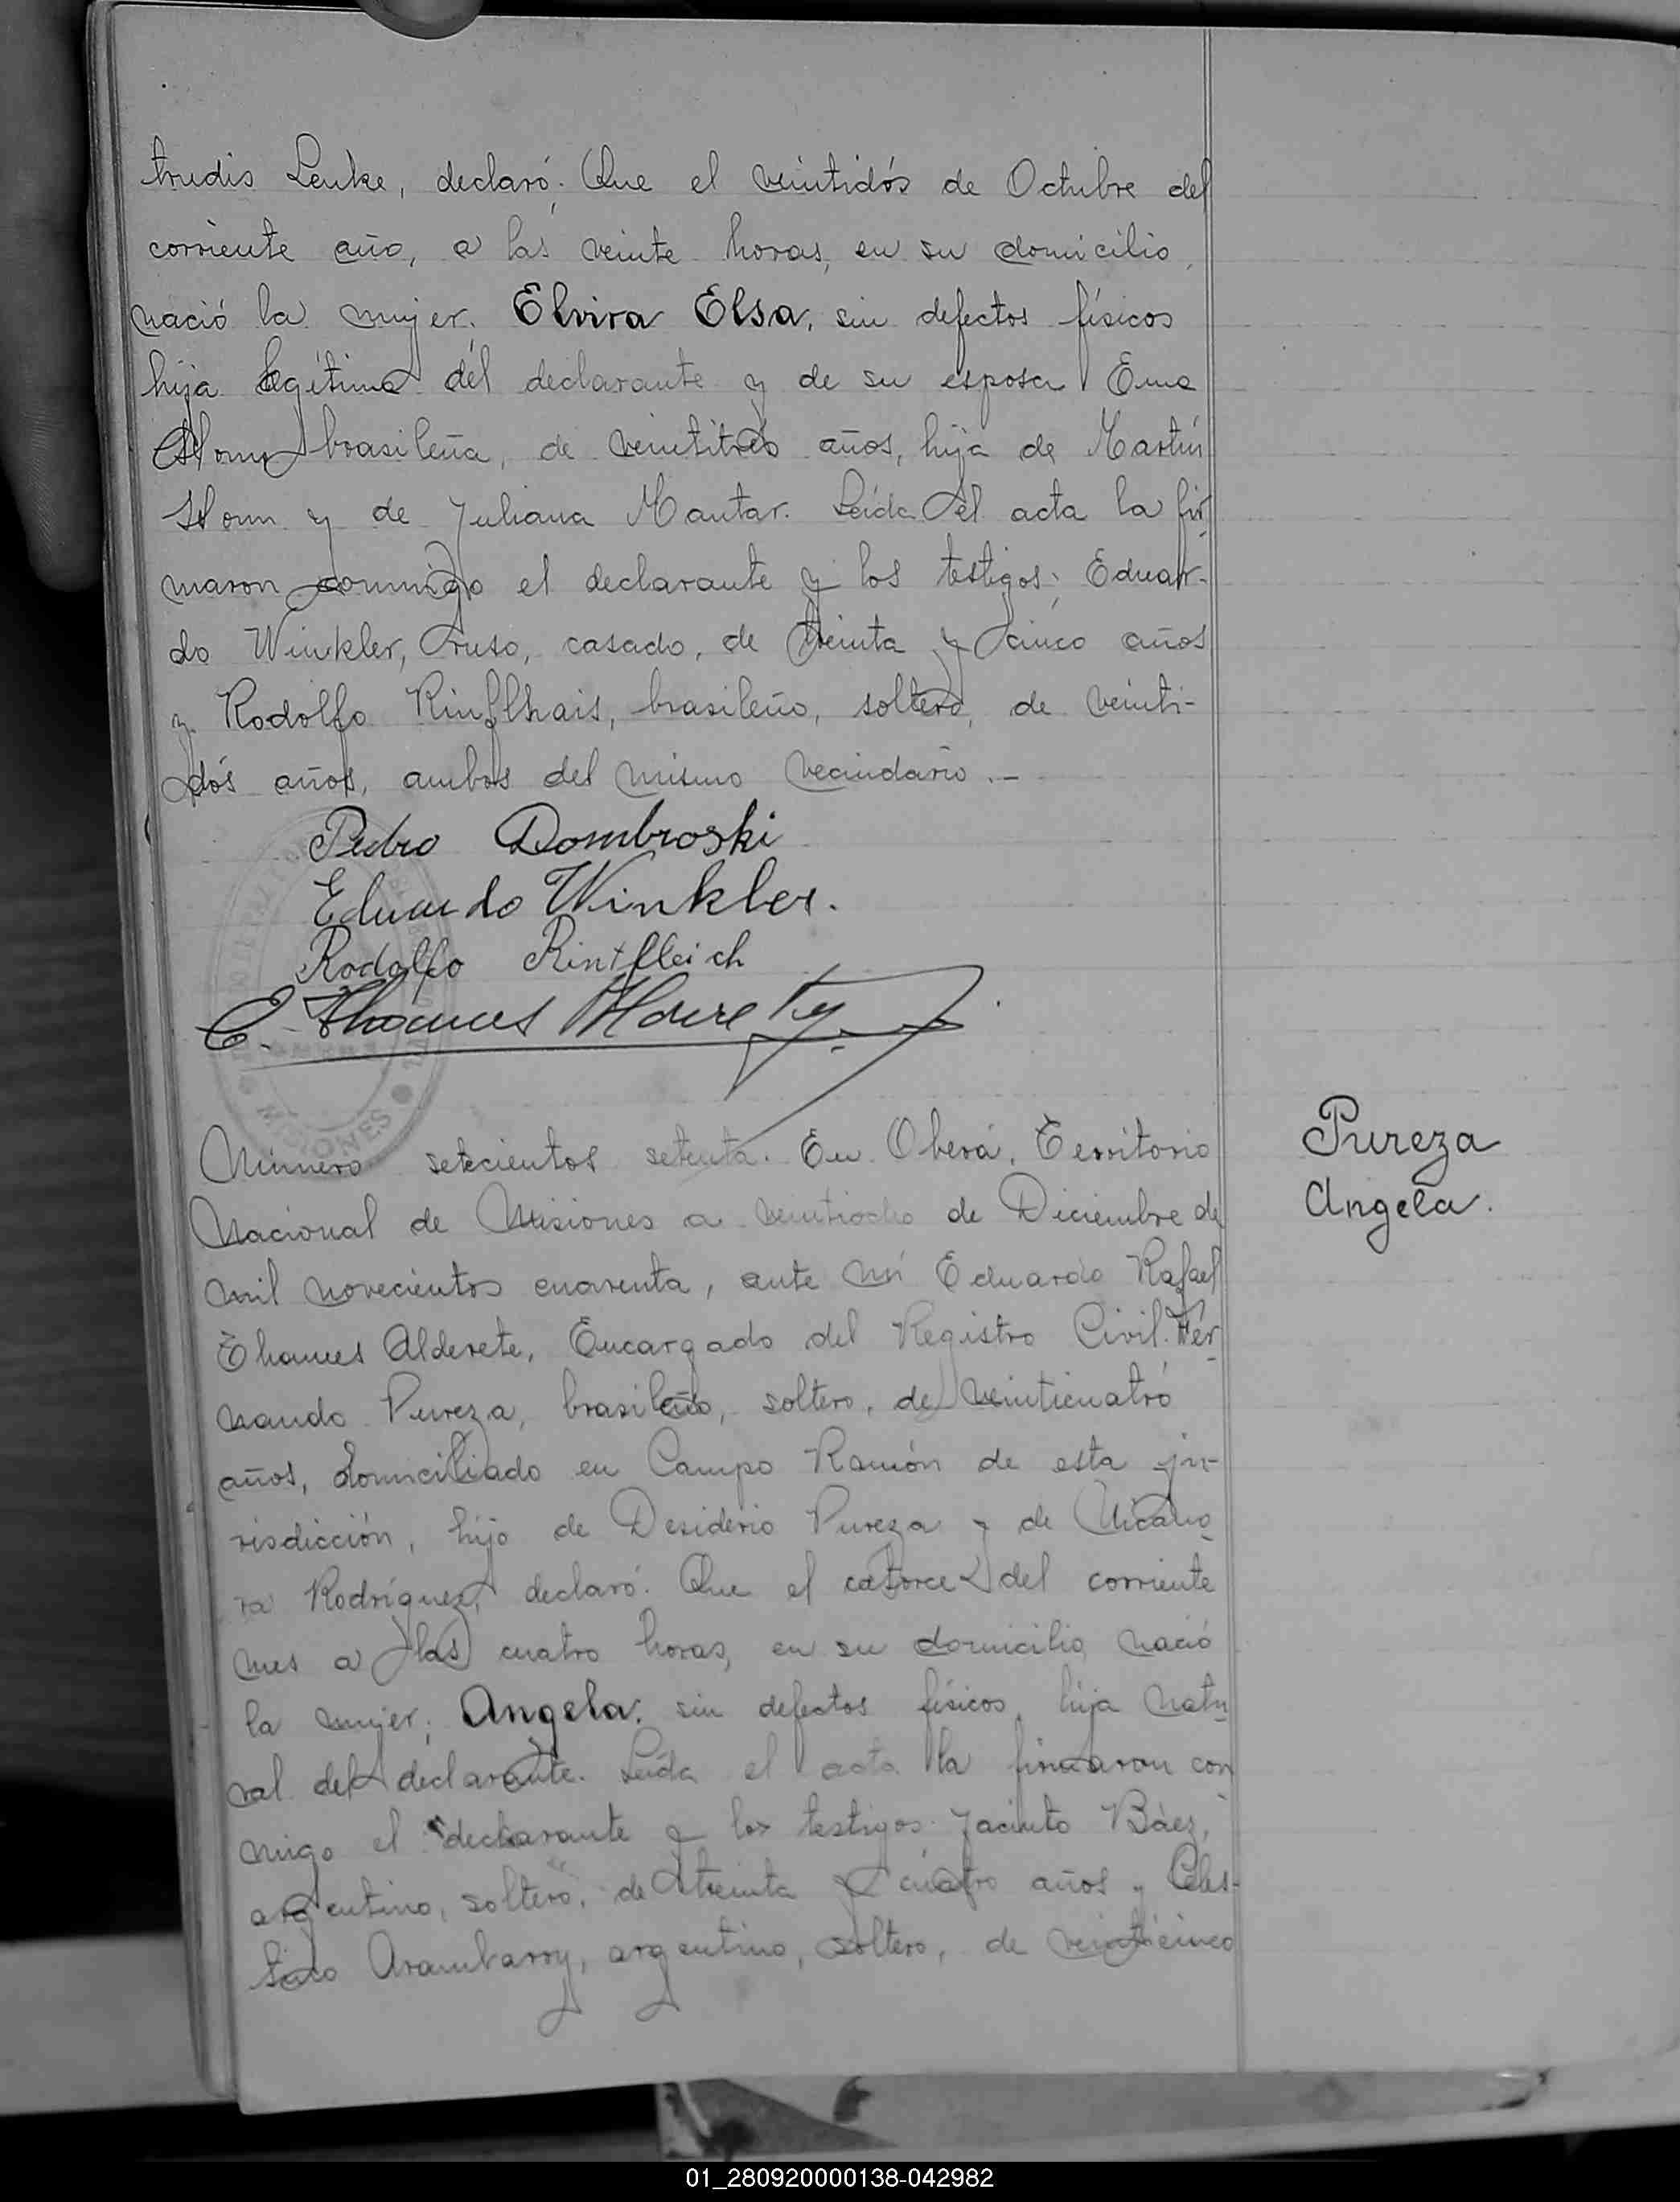 trudis Leuke, declaró: Que el veintidós de Octubre del
corriente año, a las veinte horas, en su domicilio,
nació la mujer: Elvira Elsa, sin defectos físicos
hija legítima del declarante y de su esposa Ema
Horn brasileña, de veintitrés años, hija de Martín
Horn y de Juliana Mantar. Leída el acta la fir-
maron conmigo el declarante y los testigos: Eduar-
do Winkler, ruso, casado, de treinta y cinco años
y Rodolfo Rinflhais, brasileño, soltero, de veinti-
dós años, ambos del mismo vecindario.-
Pedro Dombroski
Eduardo Winkler.
Rodolfo Rintfleich
MISIONES
Número setecientos setenta. En Oberá, Territorio
Nacional de Misiones a veintiocho de Diciembre de
mil novecientos cuarenta, ante mí Eduardo Rafael
Thames Alderete, Encargado del Registro Civil. Fer-
nando Pureza, brasileño, soltero, de veinticuatro
años, domiciliado en Campo Ramón de esta ju-
risdicción, hijo de Desiderio Pureza y de
ra Rodríguez, declaró: Que el catorce del corriente
mes a las cuatro horas, en su domicilio, nació
la mujer: Angela: sin defectos físicos, hija natu-
ral del declarante. Leída el acta la firmaron con
migo el declarante y los testigos Jacinto Báez,
argentino, soltero, de treinta y cuatro años y Celes-
tino Arambarry, argentino, soltero, de veinticinco
Pureza
Angela.
01_280920000138-042982